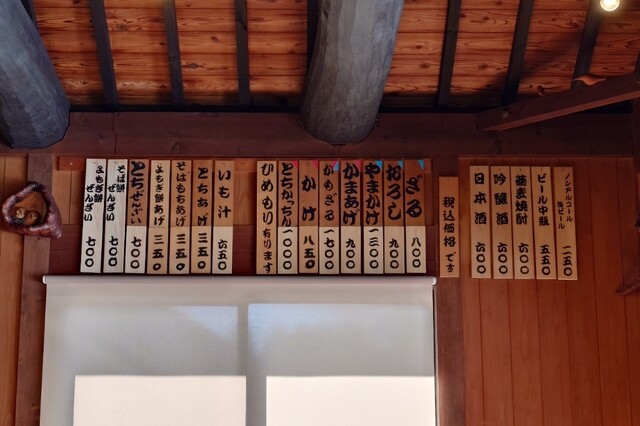 ノンアルコール
缶ビール 二五〇
ビール中瓶 五五〇
蕎麦焼酎 六〇〇
吟醸酒 六〇〇
日本酒 六〇〇
税込価格です
ざる 八〇〇
おろし 九〇〇
やまかけ 一三〇〇
かまあげ 九〇〇
かもざる 一七〇〇
かけ 八五〇
一〇〇〇
ひめもり有ります
いも汁 六五〇
とちあげ 三五〇
そばもちあげ 三五〇
よもぎ餅あげ 三五〇
とちぜんざい 七〇〇
そば餅
ぜんざい 七〇〇
よもぎ餅
ぜんざい 七〇〇